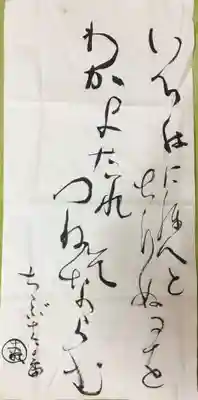 いろはにほへと
ちりぬるを
わかよたれ
つねならむ